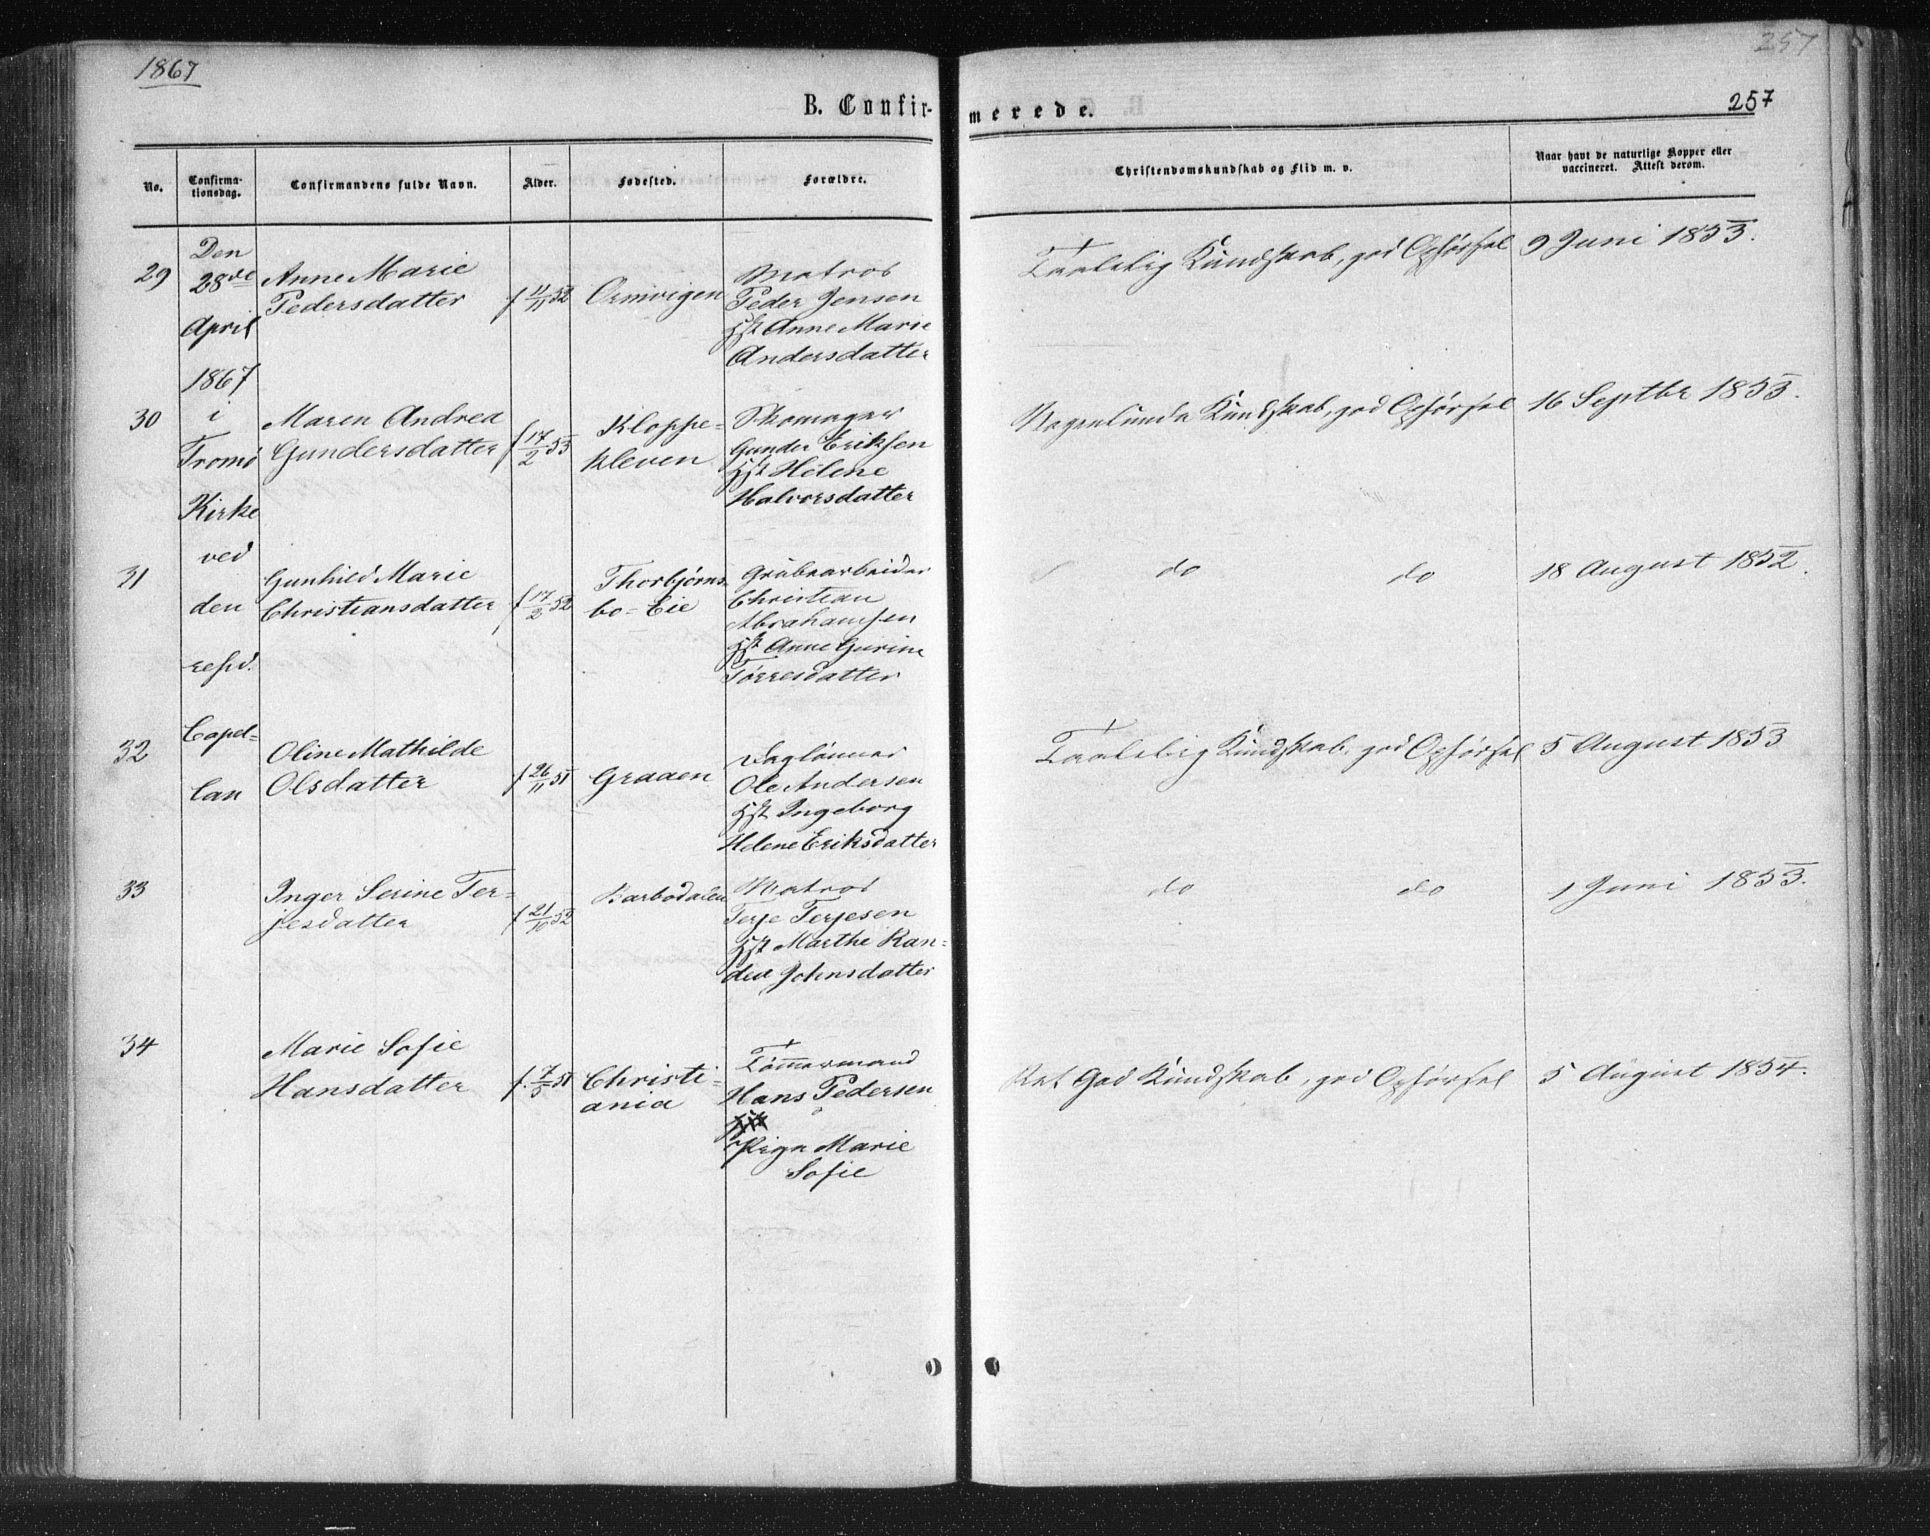 1867
257
B. Confirmerede.
257
No.
Confirmationsdag.
Confirmandens fulde Navn.
Alder.
Fødested.
Forældre.
Christendomskundskab og Flid m. v.
Naar havt de naturlige Kopper eller vaccineret. Attest derom.
Den
28de
April
1867
i
Tromø
Kirke
ved
den
resid.
Capel-
lan
29
Anne Marie
Pedersdatter
f 11/11 52
Ormvigen
Matros
Peder Jensen
Hst Anne Marie
Andersdatter
Taalelig Kundskab, god Opførsel
9 Juni 1853.
30
Maren Andrea
Gundersdatter
f 17/2 53
Kloppe-
kleven
Skomager
Gunder Eriksen
Hst Helene
Halvorsdatter
Nogenlunde Kundskab, god Opførsel
16 Septbr 1853.
31
Gunhild Marie
Christiansdatter
f 17/2 52
Thorbjørns
bo-Eie
Grubearbeider
Christian
Abrahamsen
Hst Anne Gurine
Tørresdatter
do do
18 August 1852.
32
Oline Mathilde
Olsdatter
f 26/11 51
Graaen
Daglønner
Ole Andersen
Hst Ingeborg
Helene Eriksdatter
Taalelig Kundskab, god Opførsel
5 August 1853
33
Inger Serine Ter-
jesdatter
f 21/10 52
Barbodalen
Matros
Terje Terjesen
Hst Marthe Ran-
dea Johnsdatter
do do
1 Juni 1853.
34
Marie Sofie
Hansdatter
f. 7/5 51
Christi-
ania
Tømmermand
Hans Pedersen
Pige Marie
Sofie
Ret God Kundskab, god Opførsel
5 August 1854.